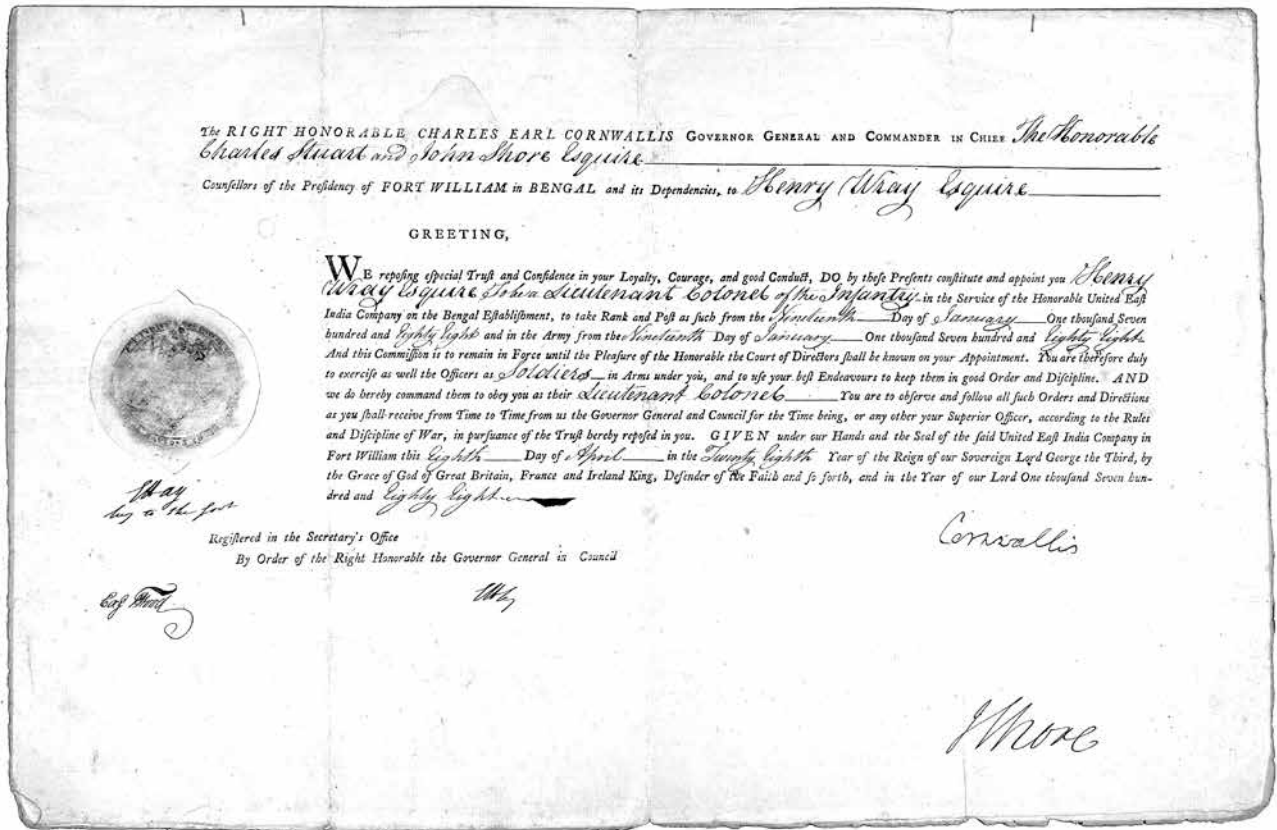 The RIGHT HONORABLE CHARLES EARL CORNWALLIS GOVERNOR GENERAL AND COMMANDER IN CHIEF The Honorable
Charles Stuart and John Shore Esquire
Counſellors of the Preſidency of FORT WILLIAM in BENGAL and its Dependencies, to Henry Wray Esquire
GREETING,
WE repoſing eſpecial Truſt and Confidence in your Loyalty, Courage, and good Conduct, DO by theſe Preſents conſtitute and appoint you Henry
Wray Esquire To be a Lieutenant Colonel of the Infantry in the Service of the Honorable United Eaſt
India Company on the Bengal Eſtabliſhment, to take Rank and Poſt as ſuch from the Nineteenth Day of January One thouſand Seven
hundred and Eighty Eight and in the Army from the Nineteenth Day of January One thouſand Seven hundred and Eighty Eight
And this Commiſſion is to remain in Force until the Pleaſure of the Honorable the Court of Directors ſhall be known on your Appointment. You are therefore duly
to exerciſe as well the Officers as Soldiers in Arms under you, and to uſe your beſt Endeavours to keep them in good Order and Diſcipline. AND
we do hereby command them to obey you as their Lieutenant Colonel You are to obſerve and follow all ſuch Orders and Directions
as you ſhall receive from Time to Time from us the Governor General and Council for the Time being, or any other your Superior Officer, according to the Rules
and Diſcipline of War, in purſuance of the Truſt hereby repoſed in you. GIVEN under our Hands and the Seal of the ſaid United Eaſt India Company in
Fort William this Eighth Day of April in the Twenty Eighth Year of the Reign of our Sovereign Lord George the Third, by
the Grace of God of Great Britain, France and Ireland King, Defender of the Faith and ſo forth, and in the Year of our Lord One thouſand Seven hun-
dred and Eighty Eight
to the
Cornwallis
Regiſtered in the Secretary's Office
By Order of the Right Honorable the Governor General in Council
J Shore